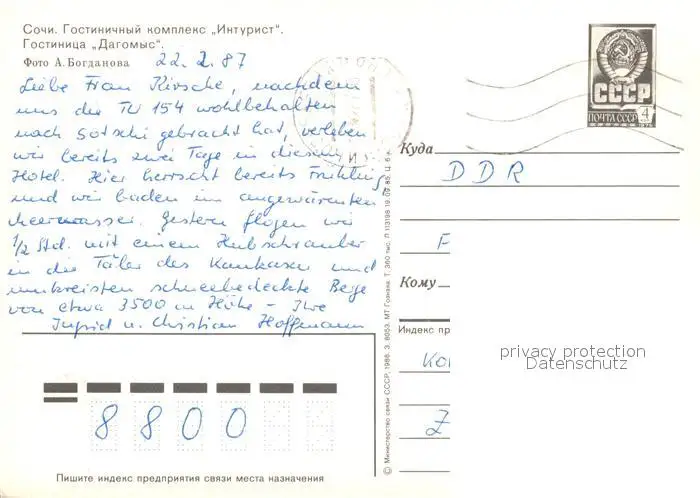 Сочи. Гостиничный комплекс „Интурист“.
Гостиница „Дагомыс“.
Фото А. Богданова
22. 2. 87
Liebe Frau Kirsche, nachdem
uns die TU 154 wohlbehalten
nach Sotschi gebracht hat, verleben
wir bereits zwei Tage in diesem
Hotel. Hier herrscht bereits Frühling,
und wir baden im angewärmten
Meerwasser. Gestern flogen wir
1/2 Std. mit einem Hubschrauber
in die Täler des Kaukasus und
umkreisten schneebedeckte Berge
von etwa 3500 m Höhe – Ihre
Ingrid u. Christian Hoffmann
8800
Пишите индекс предприятия связи места назначения
© Министерство связи СССР, 1986. З. 8053. МТ Гознака. Т. 360 тыс. Л 113198 19.09.85. Ц. 6
СССР
ПОЧТА СССР
4
Куда
DDR
F
Кому
Индекс пр
Ko
Z
privacy protection
Datenschutz